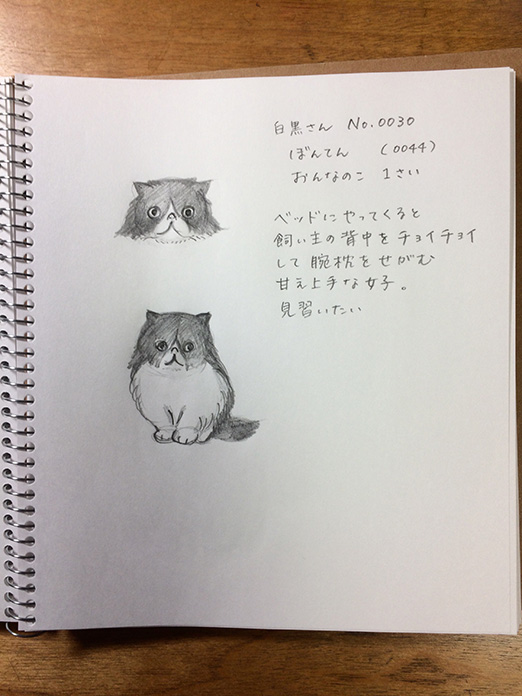 白黒さん No.0030
ぼんてん (0044)
おんなのこ 1さい
ベッドにやってくると
飼い主の背中をチョイチョイ
して腕枕をせがむ
甘え上手な女子。
見習いたい